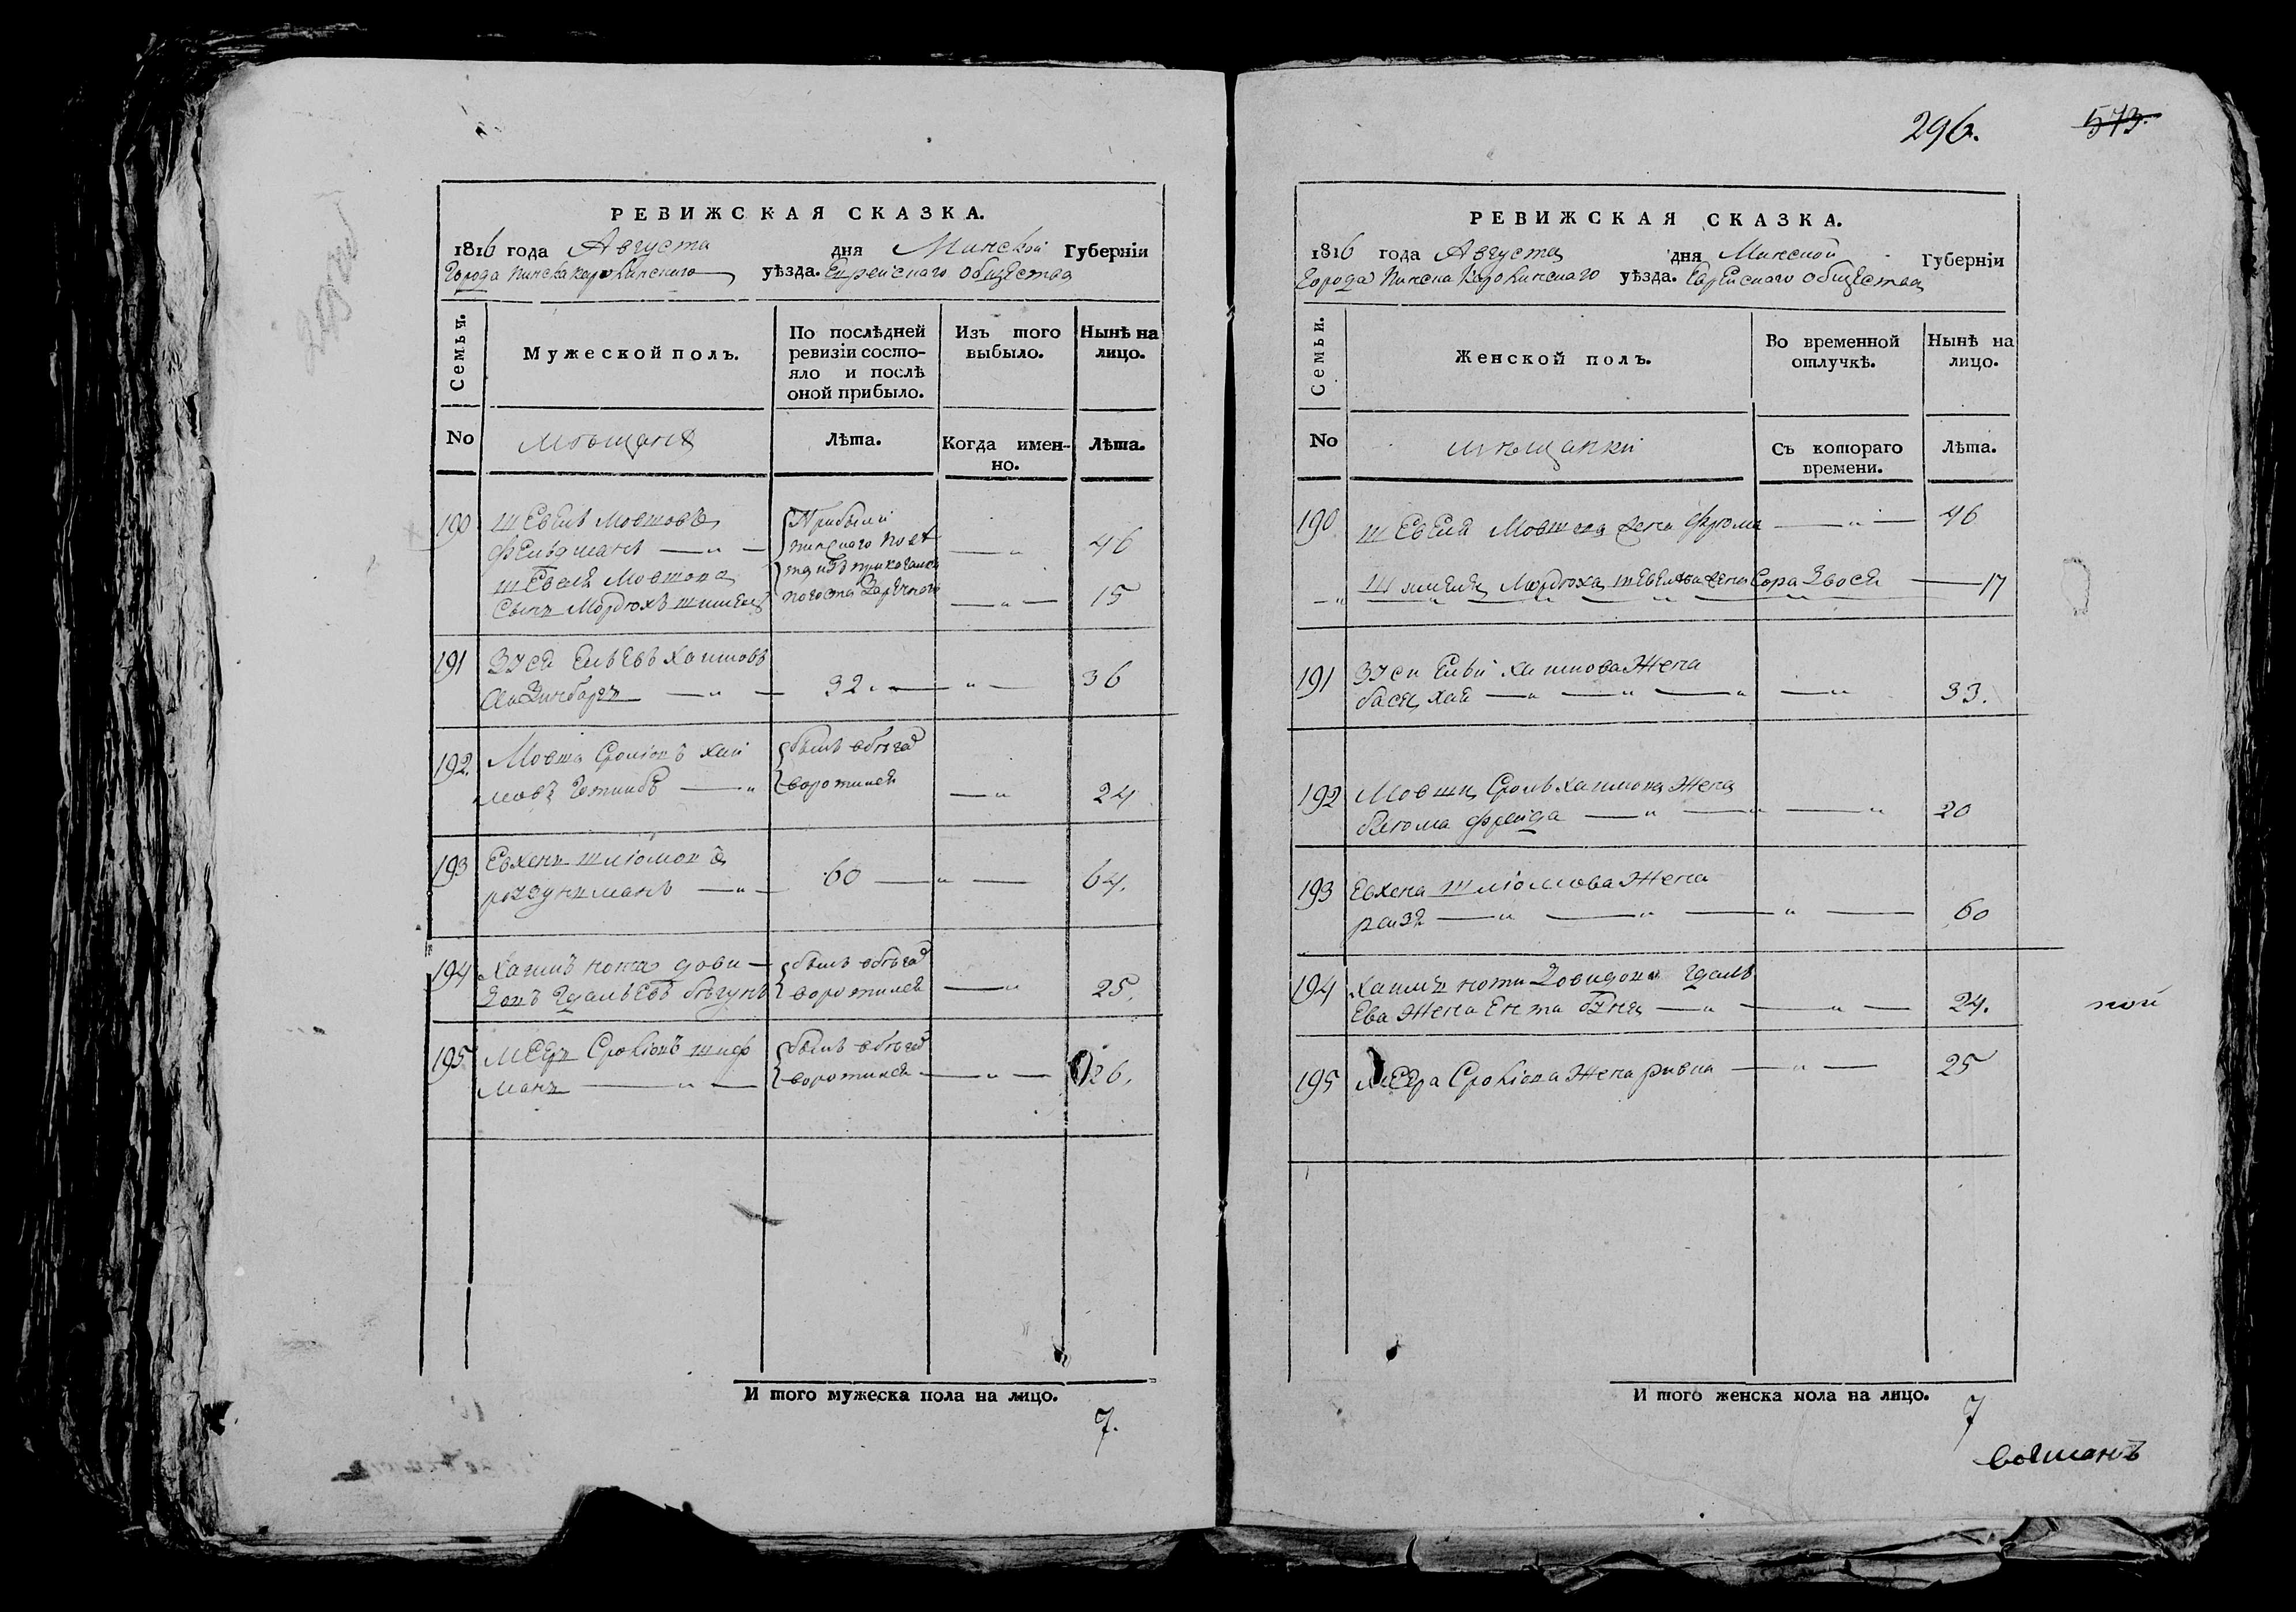 РЕВИЖСКАЯ СКАЗКА.
1816 года Августа дня Минской Губерніи
Города Пинска Каролинскаго уѣзда. Еврейскаго общества
Семьи.
Мужеской полъ.
По послѣдней ревизіи состо-
яло и послѣ оной прибыло.
Изъ того выбыло.
Нынѣ на лицо.
No
мѣщане
Лѣта.
Когда имен-
но.
Лѣта.
190 Шевель Мовшовъ Прибылъ
Фельдманъ — " — пинскаго повѣ 46
Шевеля Мовшова та изъ
сынъ Мордюхъ Шмуель погоста Зарѣчнаго — " — 15
191 Зуся Ельевъ Хаимовъ
— " — 32 . — " — 36
192. Мовша Сролювъ Хаи былъ въ бѣгахъ
мовъ — " воротился — " 24
193 Евхенъ Шліомовъ
— " — 60 — " — 64.
194 Хаимъ Нота Дови былъ въ бѣгах
довъ Гдальевъ бѣгунъ воротился — " 25.
195 Мееръ Сролювъ Шиф былъ въ бѣгах
манъ — " — воротился — " — 26.
И того мужеска пола на лицо.
7.
296.
573.
РЕВИЖСКАЯ СКАЗКА.
1816 года Августа дня Минской Губерніи
Города Пинска Каролинскаго уѣзда. Еврейскаго общества
Семьи.
Женской полъ.
Во временной отлучкѣ.
Нынѣ на лицо.
No
мѣщанки
Съ котораго времени.
Лѣта.
190 Шевеля Мовшова жена Фрума — " — 46
" Шмуеля Мордюха Шевелева жена Сора Двося — 17
191 Зуси Ельи Хаимова жена
бася хая — " — " — " — " 33.
192 Мовши Сроль Хаимова жена
Фрейда — " — " — " 20
193 Евхена Шліомова жена
Райза — " — " — " — 60
194 ХаимаНоти Довидова Гдаль
ева жена Ента — " — " — 24.
195 Меера Сролюва жена Ривка — " — 25
ной
И того женска пола на лицо.
7